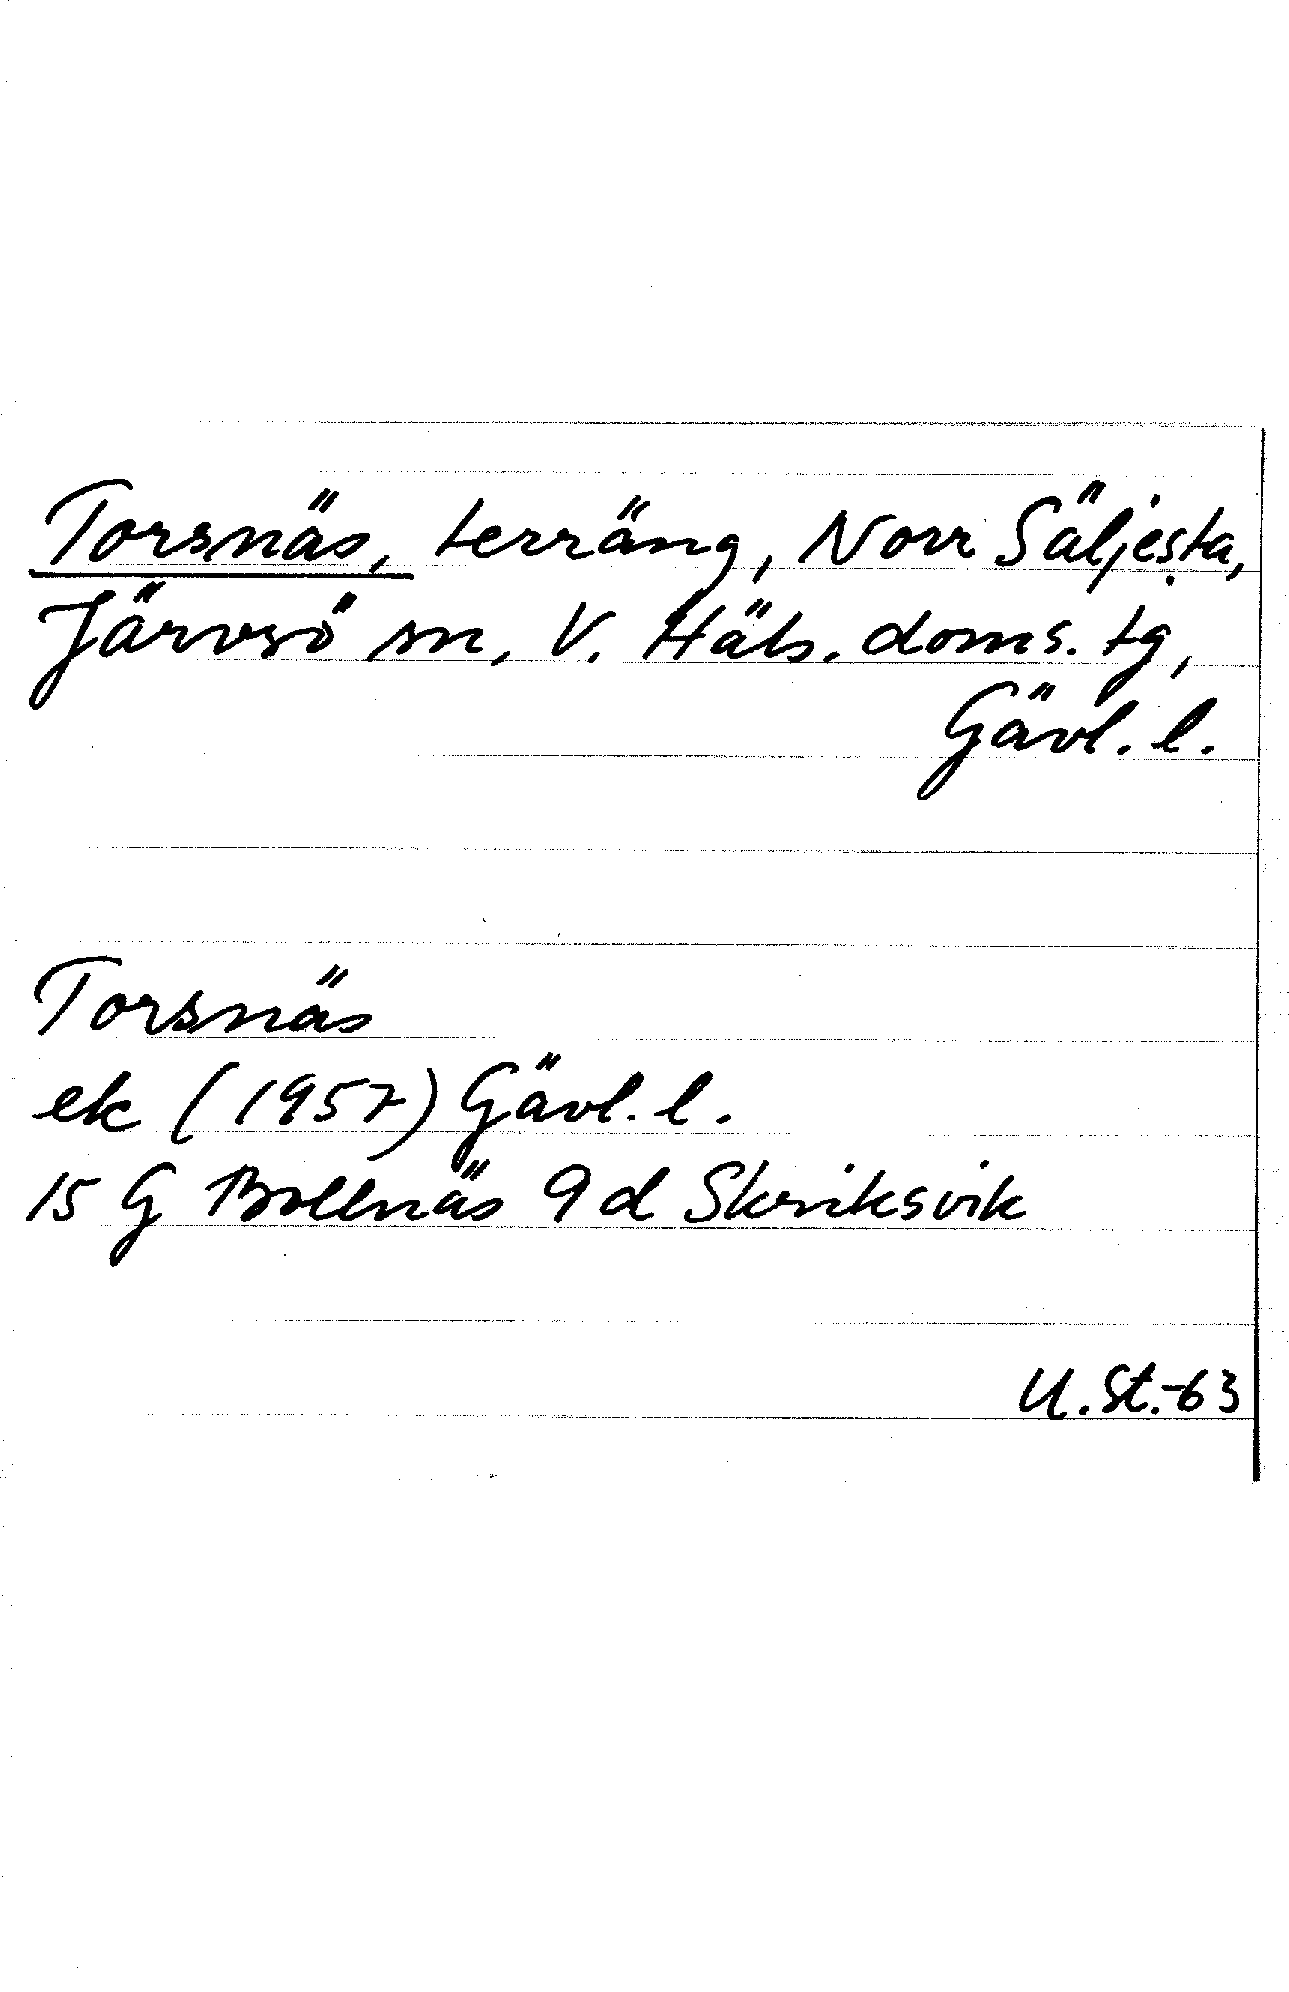 Torsnäs, terräng, Norr Säljesta,
Järvsö sn, V. Häls. doms. tg,
Gävl. l.
Torsnäs
ek (1957) Gävl. l.
15 G Bollnäs 9 d Skriksvik
U. St.-63